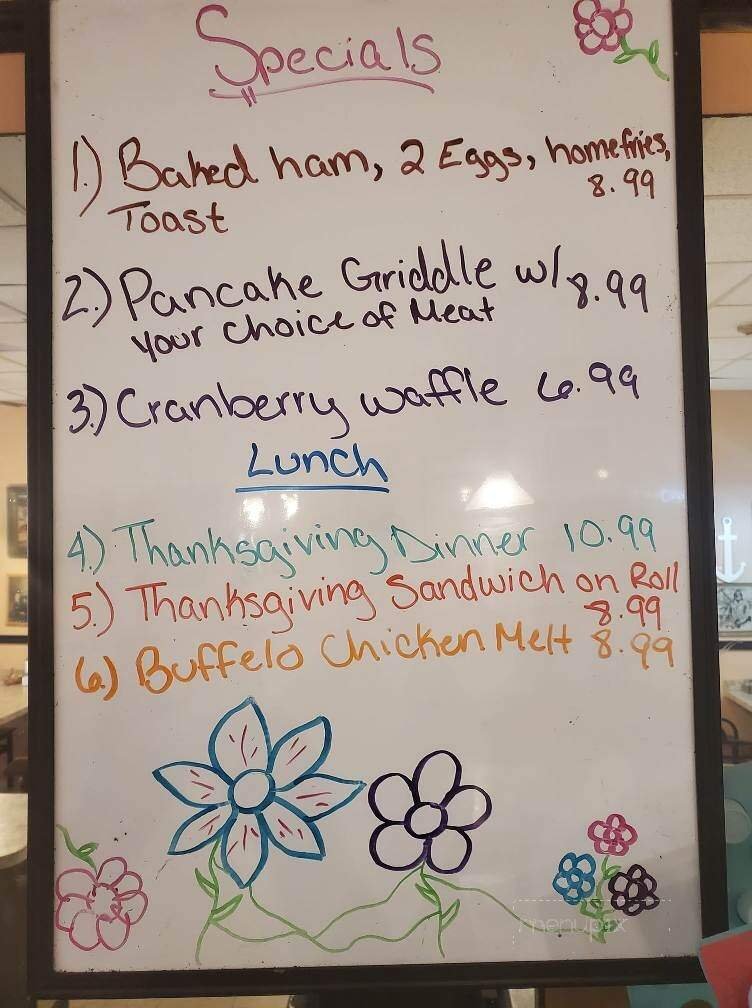 Specials
1.) Baked ham, 2 Eggs, homefries,
8.99
Toast
2.) Pancake Griddle w/ 8.99
your choice of Meat
3.) Cranberry waffle 6.99
Lunch
4.) Thanksgiving Dinner 10.99
5.) Thanksgiving Sandwich on Roll
8.99
6.) Buffelo Chicken Melt 8.99
menupix